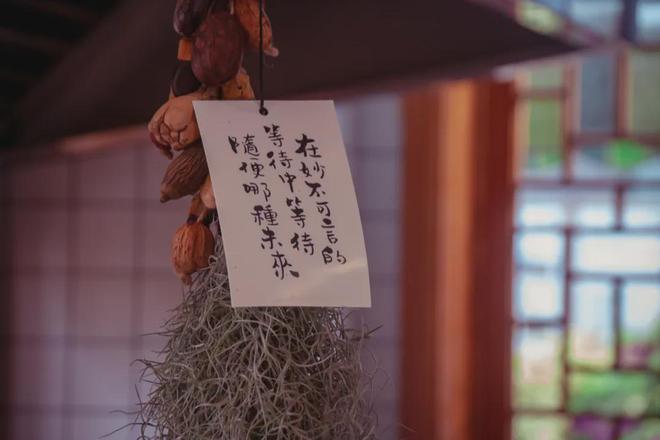 在妙不可言的
等待中等待
隨便哪種未來